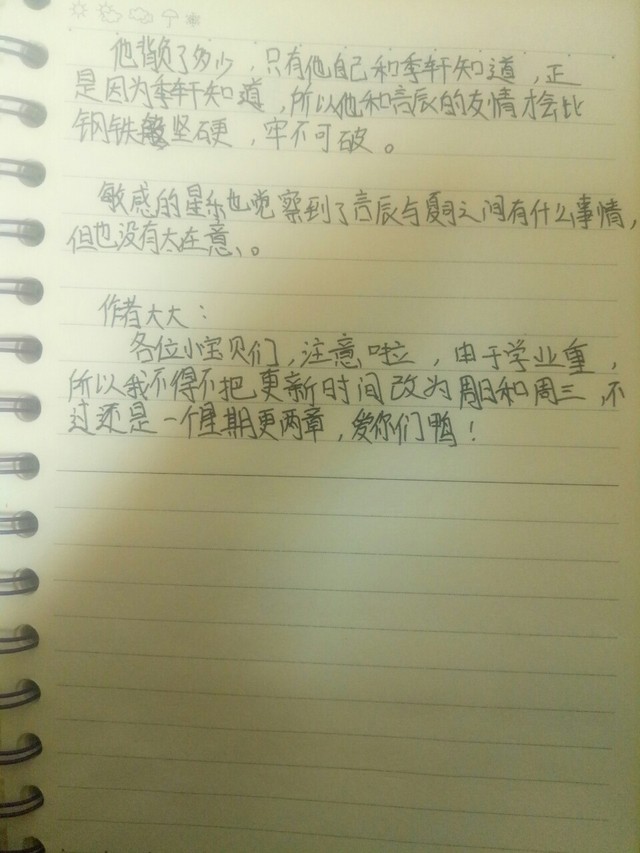 他背负了多少，只有他自己和季轩知道，正
是因为季轩知道，所以他和言辰的友情才会比
钢铁坚硬，牢不可破。
敏感的星乐也觉察到了言辰与夏司之间有什么事情，
但也没有太在意。
作者大大：
各位小宝贝们，注意啦，由于学业重，
所以我不得不把更新时间改为周日和周三，不
过还是一个星期更两章，爱你们鸭！